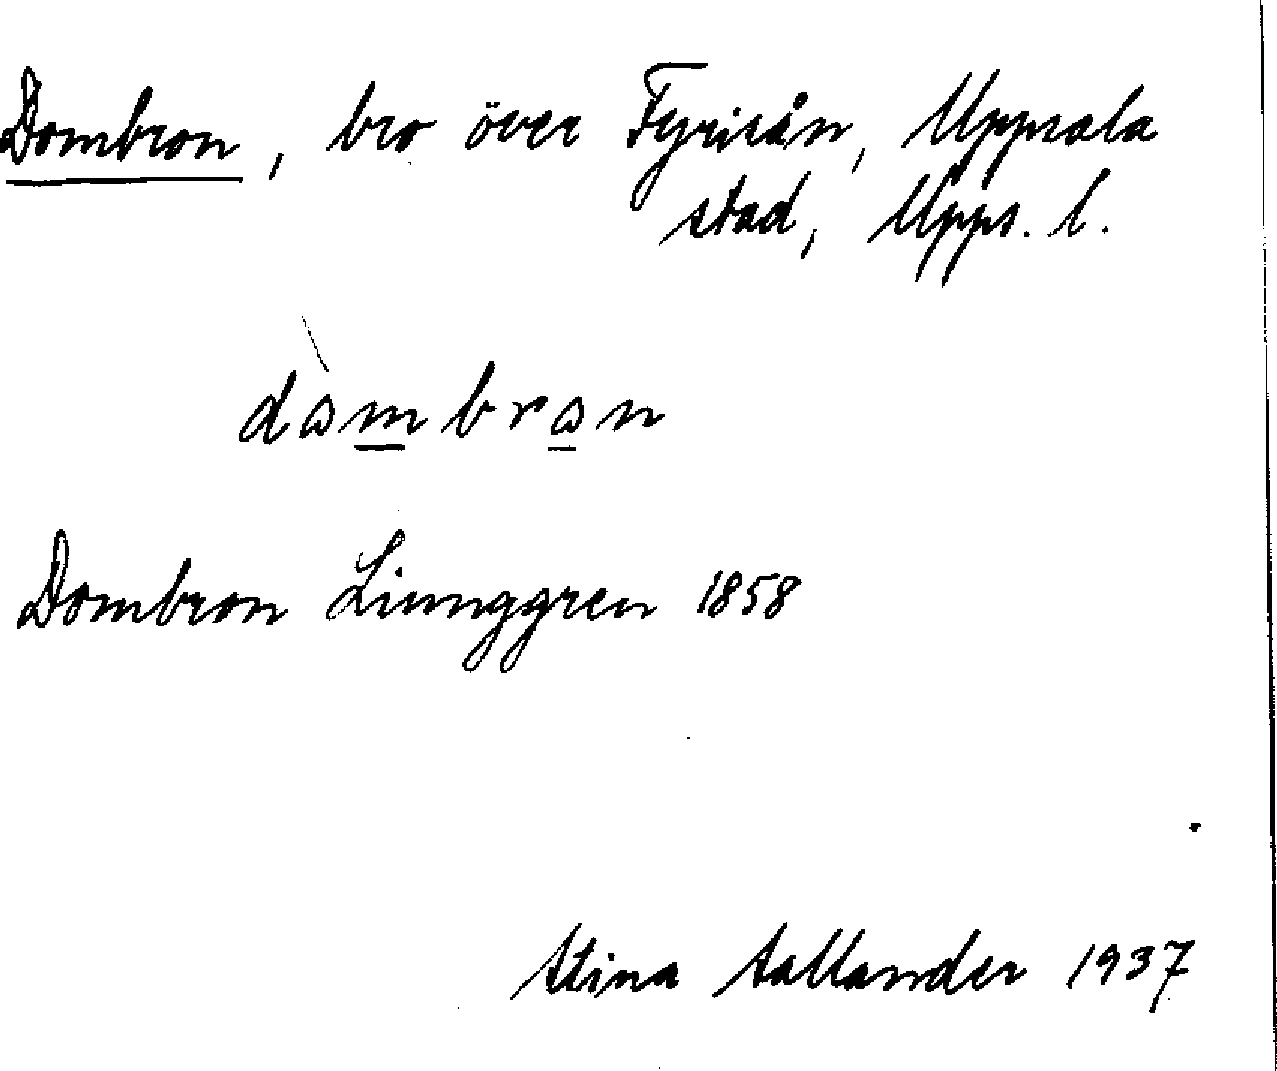 Dombron, bro över Fyrisån, Uppsala
stad, Upps. l.
dòmbron
Dombron Liunggren 1858
Stina Sallander 1937